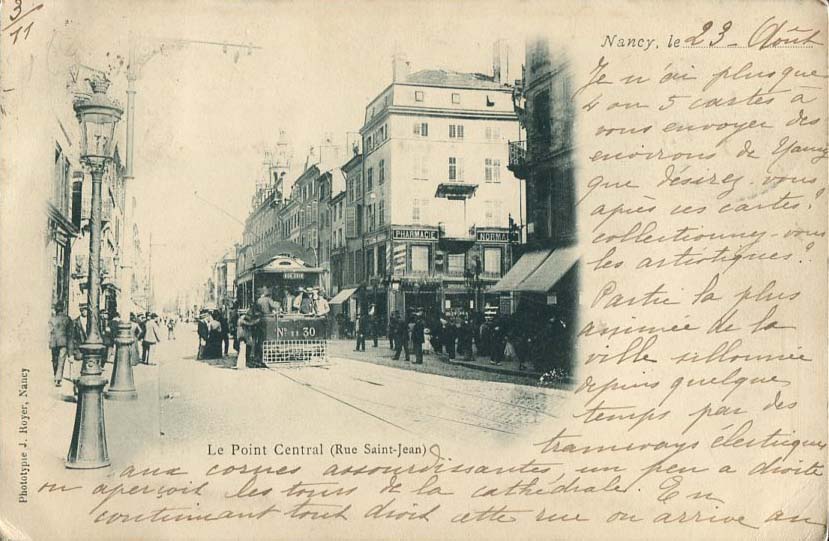 3/11
Nancy, le 23 Août
Je n'ai plus que
4 ou 5 cartes à
vous envoyer des
environs de Nancy
que désirez-vous
après ces cartes?
collectionnez-vous
les artistiques?
Partie la plus
animée de la
ville sillonnée
depuis quelque
temps par des
tramways électriques
aux cornes assourdissantes, un peu a droite
on aperçoit les tours de la cathédrale. En
continuant tout droit cette rue on arrive au
PHARMACIE
NORMALE
No 30
Le Point Central (Rue Saint-Jean)
Phototypie J. Royer, Nancy